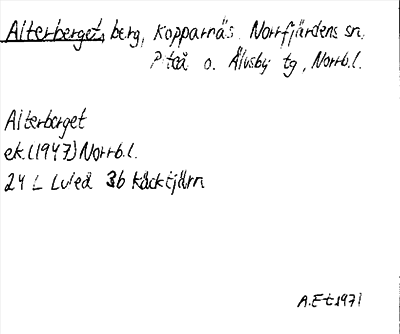 Alterberget, berg, Kopparnäs Norrfjärdens sn,
Piteå o. Älvsby tg, Norrb.l.
Alterberget
ek.(1947) Norrb.l.
24 L Luleå 3b Kåcktjärn
A.Et 1971